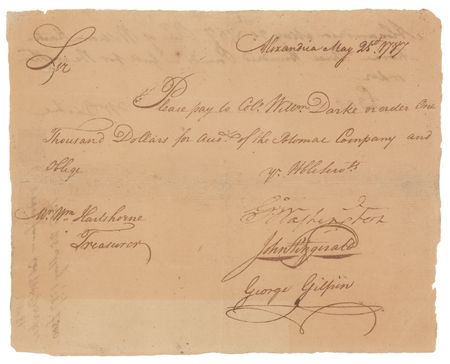 Alexandria May 23d. 1787
Sir
Please pay to Colo. Willm. Darke or order One
Thousand Dollars for Accot. of the Potomac Company and
Oblige
Yr. Hble Servts.
Go. Washington
John Fitzgerald
George Gilpin
Mr. Wm. Hartshorne
Treasurer